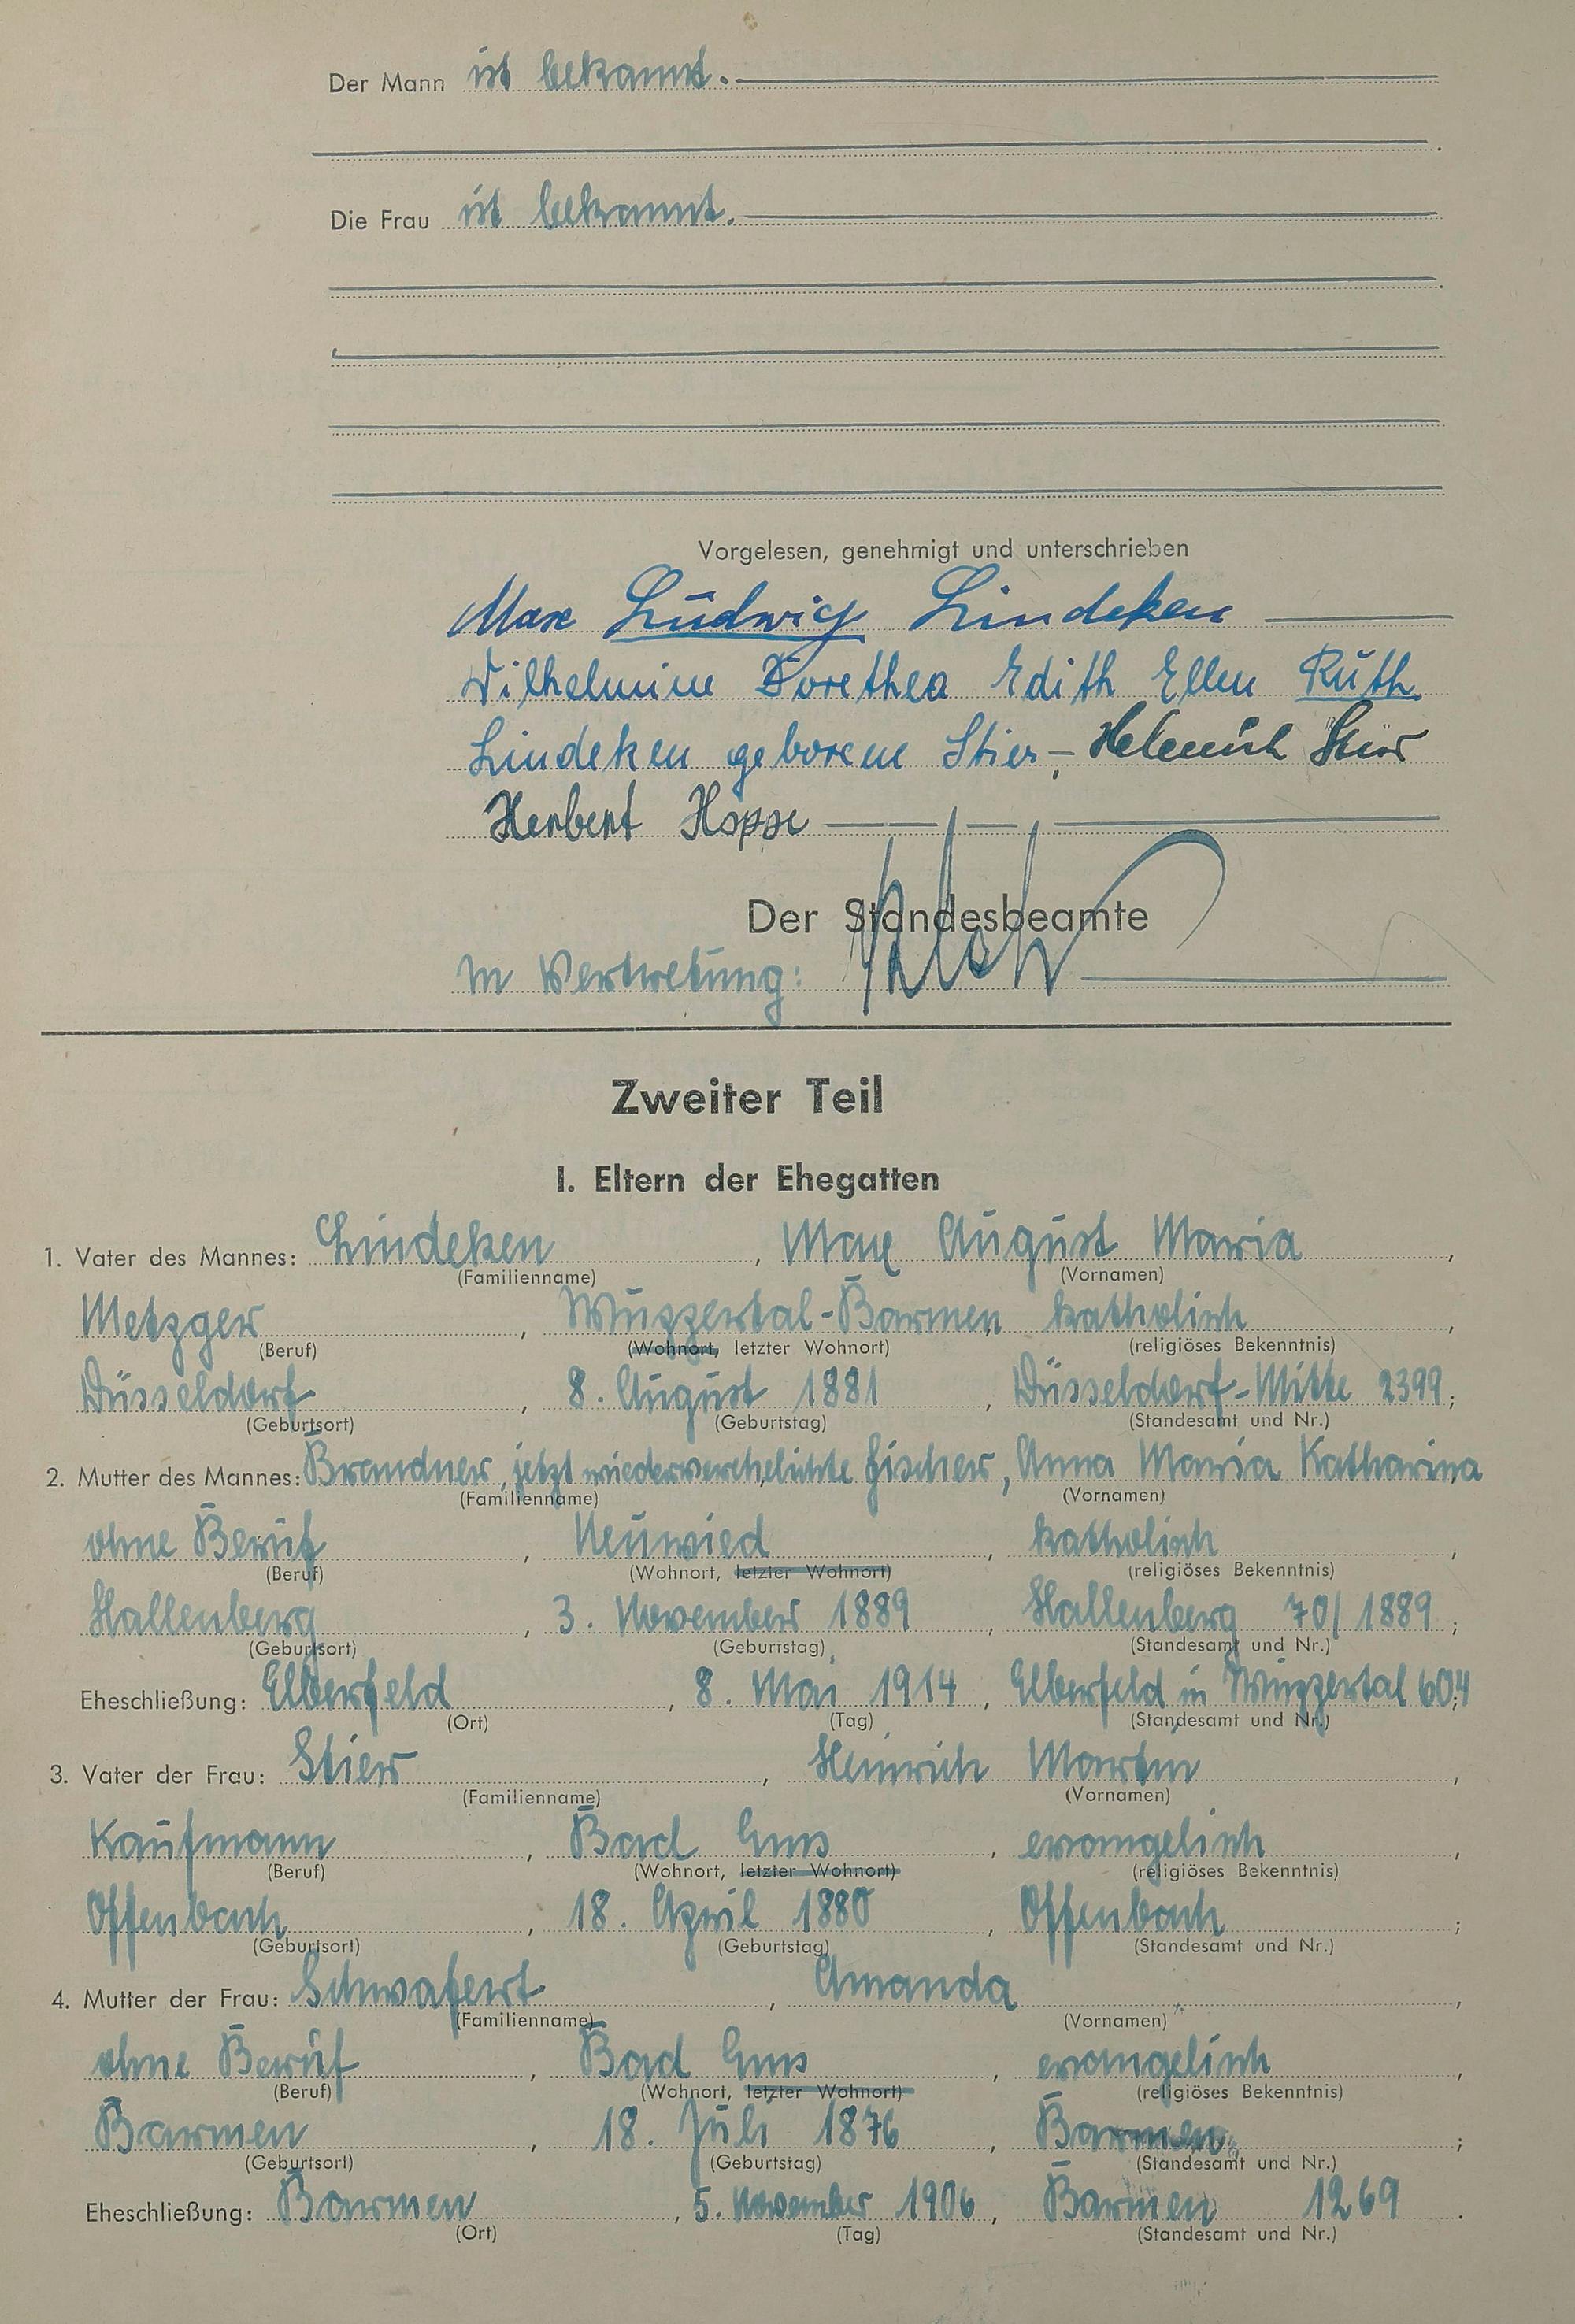 Der Mann ist bekannt.
Die Frau ist bekannt.
Vorgelesen, genehmigt und unterschrieben
Max Ludwig Lindeken
Wilhelmine Dorethea Edith Ellen Ruth
Lindeken geborene Stier, Helmuth Stier
Herbert Hoppe
Der Standesbeamte
In Vertretung:
Zweiter Teil
I. Eltern der Ehegatten
1. Vater des Mannes: Lindeken, Max August Maria,
(Familienname) (Vornamen)
Metzger, Wuppertal-Barmen, katholisch,
(Beruf) (Wohnort, letzter Wohnort) (religiöses Bekenntnis)
Düsseldorf, 8. August 1881, Düsseldorf-Mitte 2399;
(Geburtsort) (Geburtstag) (Standesamt und Nr.)
2. Mutter des Mannes: Brandner, jetzt wiederverehelichte Fischer, Anna Maria Katharina
(Familienname) (Vornamen)
ohne Beruf, Neuwied, katholisch,
(Beruf) (Wohnort, letzter Wohnort) (religiöses Bekenntnis)
Hallenberg, 3. November 1889, Hallenberg 70/1889;
(Geburtsort) (Geburtstag) (Standesamt und Nr.)
Eheschließung: Elberfeld, 8. Mai 1914, Elberfeld in Wuppertal 604;
(Ort) (Tag) (Standesamt und Nr.)
3. Vater der Frau: Stier, Heinrich Martin,
(Familienname) (Vornamen)
Kaufmann, Bad Ems, evangelisch,
(Beruf) (Wohnort, letzter Wohnort) (religiöses Bekenntnis)
Offenbach, 18. April 1880, Offenbach;
(Geburtsort) (Geburtstag) (Standesamt und Nr.)
4. Mutter der Frau: Schwafert, Amanda,
(Familienname) (Vornamen)
ohne Beruf, Bad Ems, evangelisch,
(Beruf) (Wohnort, letzter Wohnort) (religiöses Bekenntnis)
Barmen, 18. Juli 1876, Barmen;
(Geburtsort) (Geburtstag) (Standesamt und Nr.)
Eheschließung: Barmen, 5. November 1906, Barmen 1269.
(Ort) (Tag) (Standesamt und Nr.)